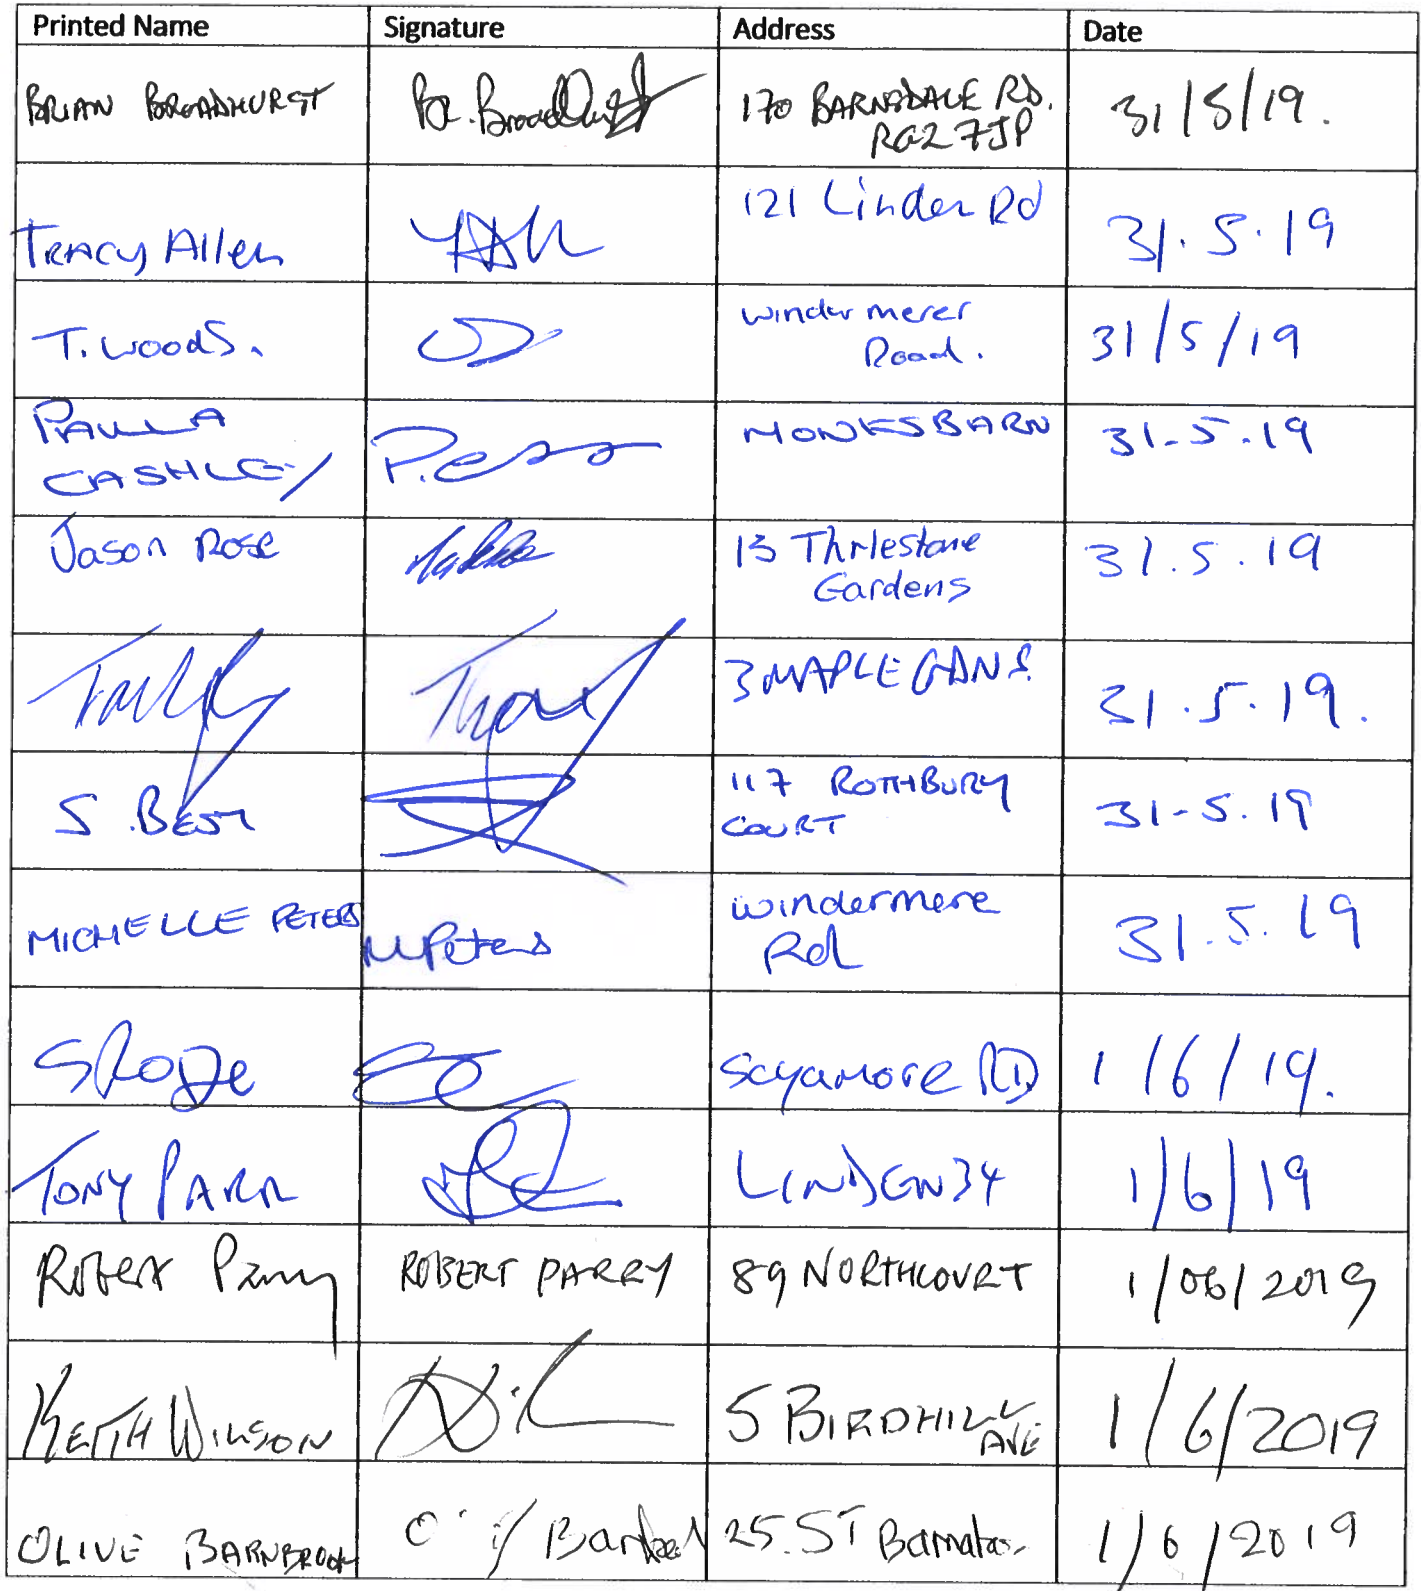 Printed Name Signature Address Date
BRIAN BROADHURST Br. Broadhurst 170 BARNSDALE RD. 31/5/19.
RG2 7JP
TRACY Allen 121 Linden Rd 31.5.19
T. WOODS. windermerer 31/5/19
Road.
PAULA MONKSBARN 31.5.19
CASHLEY
Jason Rose 13 Thrlestane 31.5.19
Gardens
3 MAPLE GDNS. 31.5.19.
S. BEST 117 ROTHBURY 31-5.19
COURT
MICHELLE PETERS MPeters windermere 31.5.19
Rd
Scyamore RD 1/6/19.
TONY PARR LINDEN 34 1/6/19
Robert Parry ROBERT PARRY 89 NORTHCOURT 1/06/2019
KEITH WILSON 5 BIRDHILL 1/6/2019
AVE
OLIVE BARNBROOK 25. ST Barnabas 1/6/2019